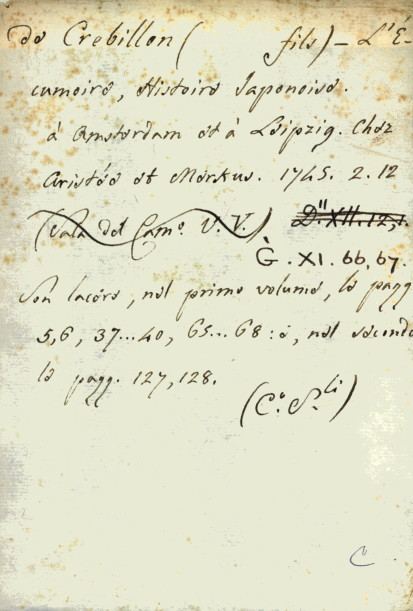 de Crebillon ( fils) – L'É-
cumoire, Histoire Japonoise.
à Amsterdam et à Leipzig. Chez
Aristée et Merkus. 1745. 2. 12
(Sala del Cam.º V. V.) D.ⁿ XII. 12,1.
G. XI. 66, 67.
Son lacere, nel primo volume, le pagg
5,6, 37...40, 65...68: e, nel secondo
le pagg. 127, 128.
(C.º S.li)
C